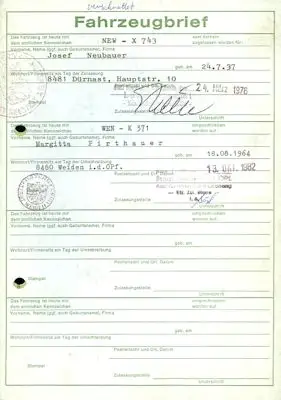 verschrottet
Fahrzeugbrief
Das Fahrzeug ist heute mit
dem amtlichen Kennzeichen NEW - X 743
zugelassen worden für:
Vorname, Name (ggf. auch Geburtsname), Firma
Josef Neubauer
geb. am 24.7.37
Wohnort/Firmensitz am Tag der Zulassung
8481 Dürnast, Hauptstr. 10
24. 1976
Stempel
Zulassungsstelle
Unterschrift
Das Fahrzeug ist heute mit
dem amtlichen Kennzeichen WEN - K 371
Vorname, Name (ggf. auch Geburtsname), Firma
Margitta Pirthauer
geb. am 18.08.1964
Wohnort/Firmensitz am Tag der Umschreibung
8480 Weiden i.d.OPf.
13. 1982
Stempel
Zulassungsstelle
Unterschrift
Das Fahrzeug ist heute mit
dem amtlichen Kennzeichen
Vorname, Name (ggf. auch Geburtsname), Firma
geb. am
Wohnort/Firmensitz am Tag der Umschreibung
Postleitzahl und Ort, Datum
Stempel
Zulassungsstelle
Unterschrift
Das Fahrzeug ist heute mit
dem amtlichen Kennzeichen
Vorname, Name (ggf. auch Geburtsname), Firma
geb. am
Wohnort/Firmensitz am Tag der Umschreibung
Postleitzahl und Ort, Datum
Stempel
Zulassungsstelle
Unterschrift